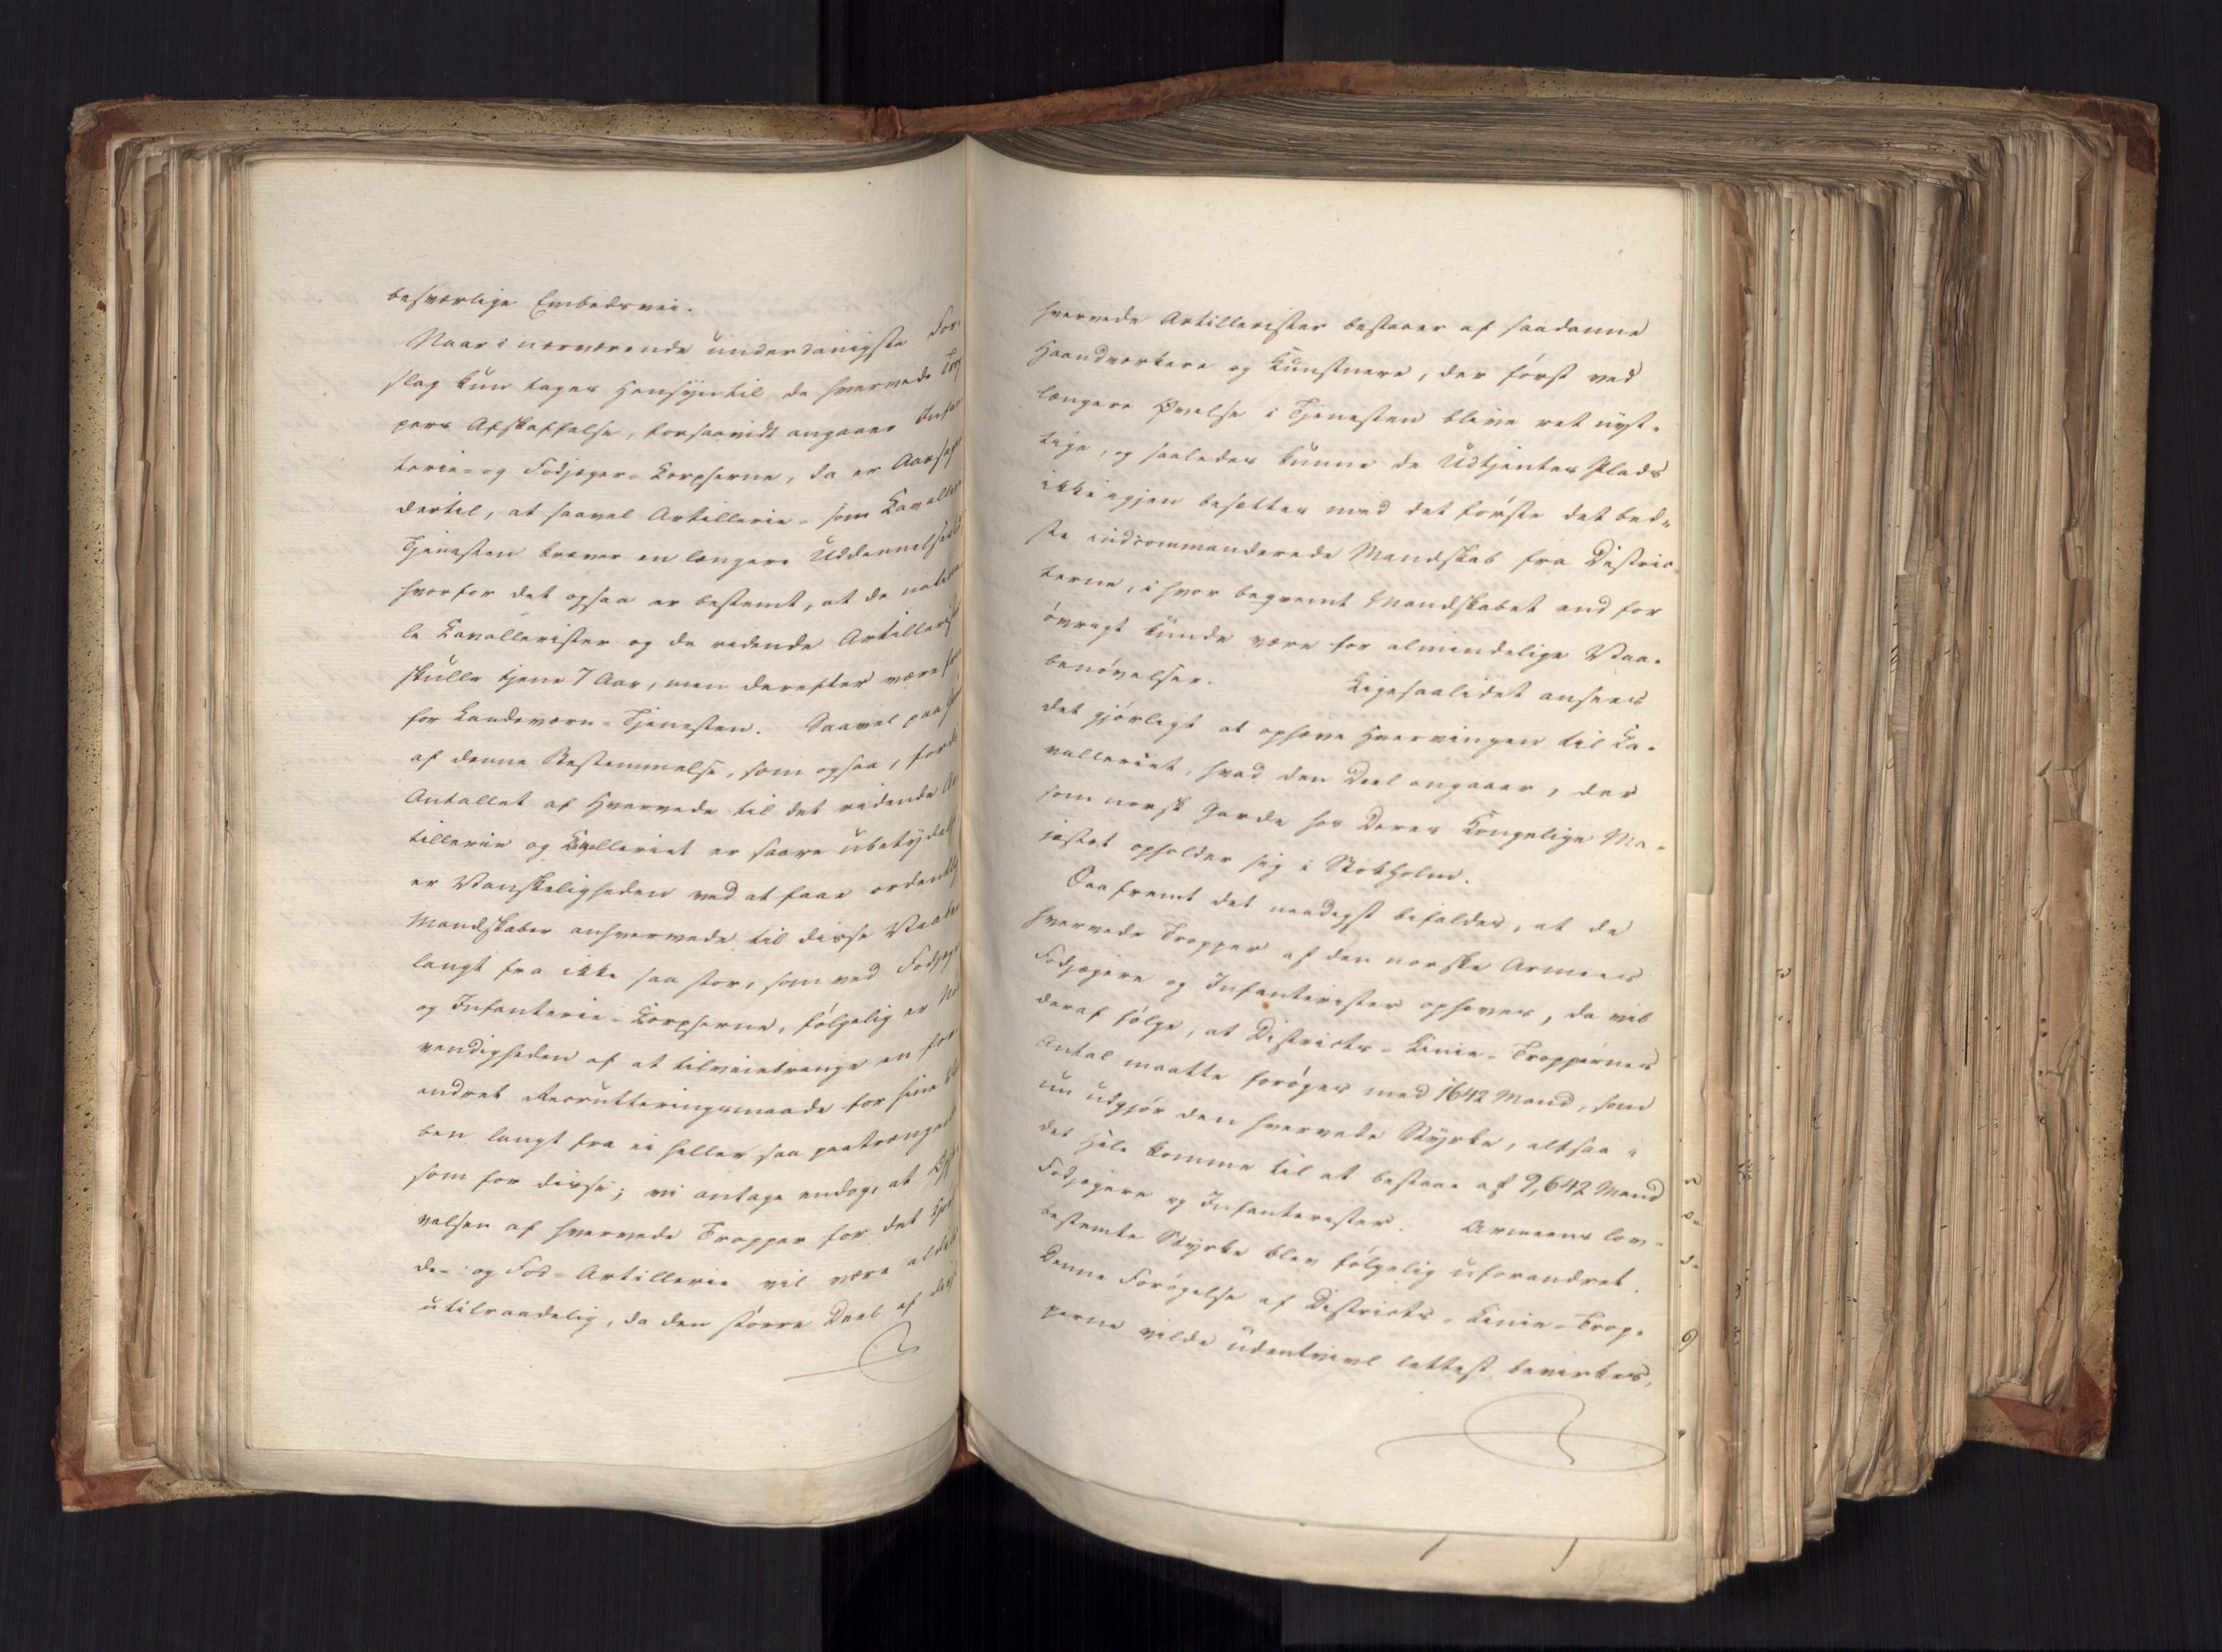 besværlige Embedsvei.
Naar i nærværende underdanigste For-
slag kun tages Hensyn til de hvervede Trop
pers Afskaffelse, forsaavidt angaaer Infan
terie- og Fodjæger-Korpserne, da er Aarsag
dertil, at saavel Artillerie- som Kavallerie
Tjenesten kræver en længere Uddannelse
hvorfor det ogsaa er bestemt, at de nationa
le Kavallerister og de ridende Artillerist
skulle tjene 7 Aar, men derefter være fri
for Landeværn-Tjenesten. Saavel paa
af denne Bestemmelse, som ogsaa, fordi
Antallet af Hvervede til det ridende Ar
tillerie og Kavalleriet er saare ubetydel
er Vanskeligheden ved at faae ordentlig
Mandskaber anhvervede til disse Vaaben
langt fra ikke saa stor, som ved Fodjæger
og Infanterie-Korpserne, følgelig er Nød
vendigheden af at tilveiebringe en for
andret Recrutteringsmaade for hine Vaa
ben langt fra ei heller saa paatrængende
som for disse; vi antage endog, at Ophæ
velsen af hvervede Tropper for det
de- og Fod-Artillerie vil være aldeles
utilraadelig, da den større Deel af
hvervede Artillerister bestaaer af saadanne
Haandværkere og Kunstnere, der først ved
længere Øvelse i Tjenesten blive ret nyt-
tige, og saaledes kunne de Udtjentes Plads
ikke igjen besættes med det første det bed-
ste indcommanderede Mandskab fra Distric-
terne, i hvor beqvemt Mandskabet end for
øvrigt kunde være for almindelige Vaa-
benøvelser. Ligesaalidet ansees
det gjørligt at ophæve Hvervingen til Ka-
valleriet, hvad den Deel angaaer, der
som norsk Garde hos Deres Kongelige Ma-
jestæt opholder sig i Stokholm.
Saafremt det naadigst befaldes, at de
hvervede Tropper af den norske Armees
Fodjægere og Infanterister ophæves, da vil
deraf følge, at Districts-Linie-Troppernes
Antal maatte forøges med 1642 Mand, som
nu udgjør den hvervede Styrke, altsaa i
det Hele komme til at bestaae af 9,642 Mand
Fodjægere og Infanterister. Armeens lov-
bestemte Styrke blev følgelig uforandret.
Denne Forøgelse af Districts-Linie-Trop-
perne vilde udentvivl lettest bevirkes,